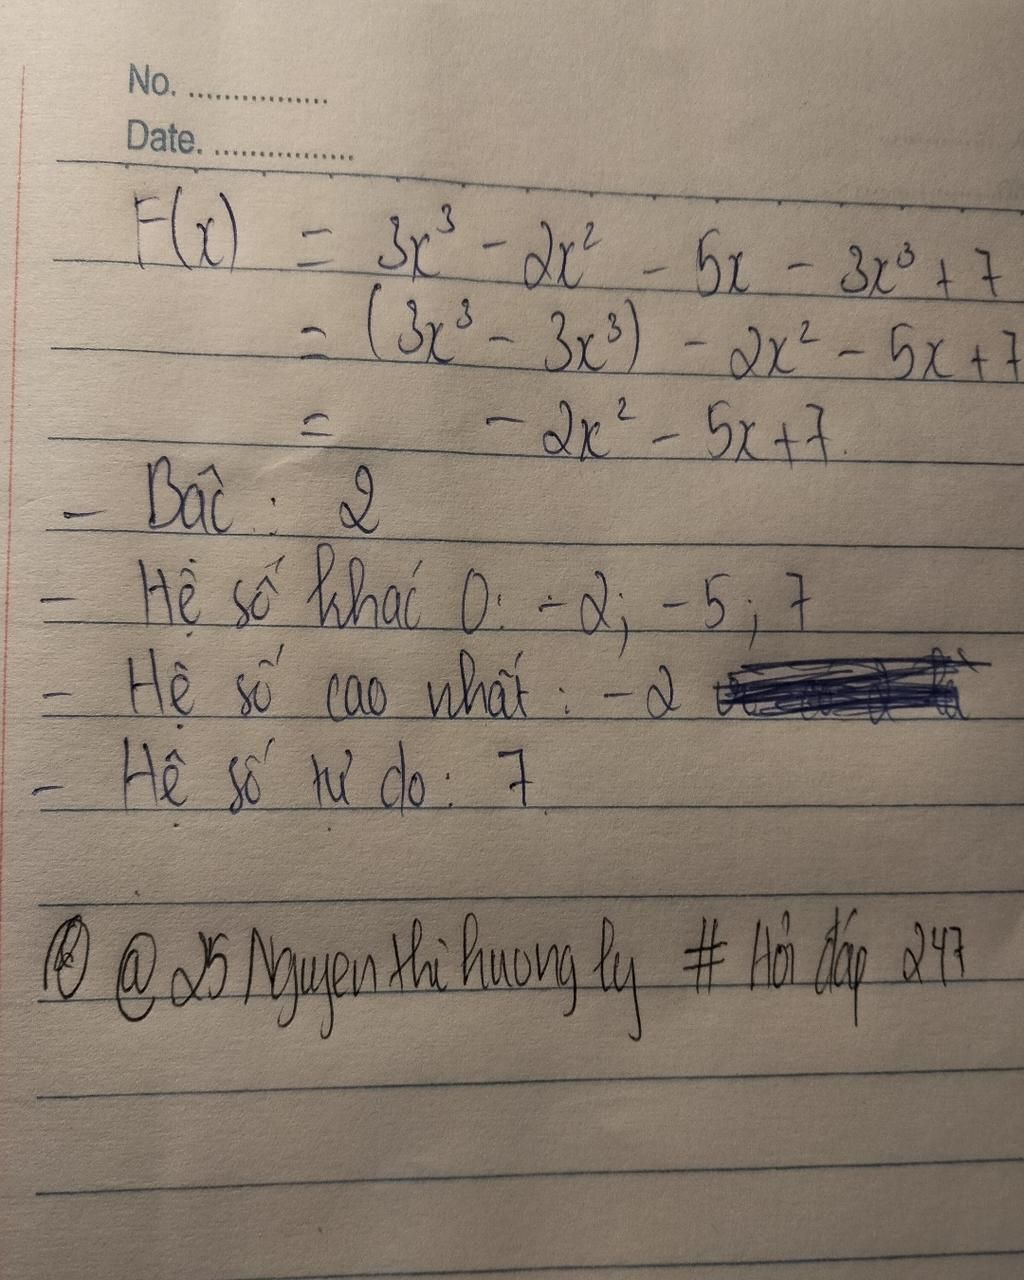 No. ................
Date. ................
F(x) = 3x³ - 2x² - 5x - 3x³ + 7
= (3x³ - 3x³) - 2x² - 5x + 7
= - 2x² - 5x + 7.
- Bâc : 2
- Hệ số khác 0: -2; -5; 7
- Hệ số cao nhất : -2
- Hệ số tự do : 7
@ 25 Nguyen thi huong ly # Hỏi đáp 247